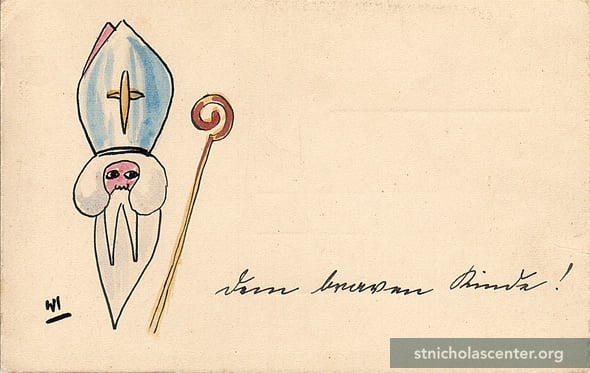 Dem braven Kinde!
WI
stnicholascenter.org